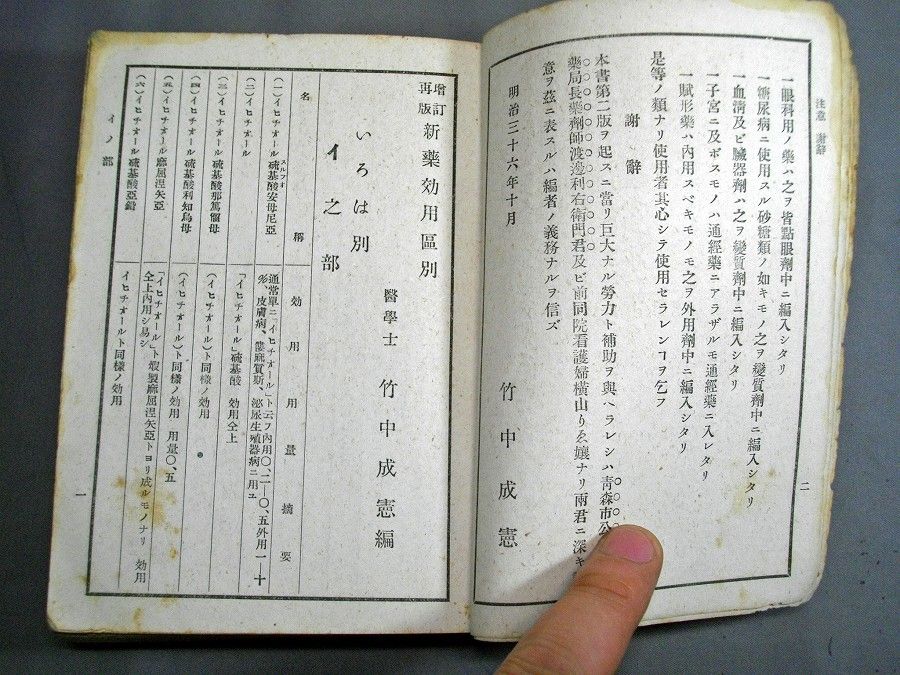 注意 謝辭
一眼科用ノ藥ハ之ヲ皆點眼劑中ニ編入シタリ
一糖尿病ニ使用スル砂糖類ノ如キモノ之ヲ變質劑中ニ編入シタリ
一血淸及ビ臟器劑ハ之ヲ變質劑中ニ編入シタリ
一子宮ニ及ボスモノハ通經藥ニアラザルモ通經藥ニ入レタリ
一賦形藥ハ內用スベキモノモ之ヲ外用劑中ニ編入シタリ
是等ノ類ナリ使用者其心シテ使用セラレンヿヲ乞フ
謝辭
本書第二版ヲ起スニ當リ巨大ナル勞力ト補助ヲ與ハラレシハ靑森市公
藥局長藥劑師渡邊利右衞門君及ビ前同院看護婦橫山りゑ孃ナリ兩君ニ深キ
意ヲ茲ニ表スルハ編者ノ義務ナルヲ信ズ
明治三十六年十月
竹中成憲
二
增訂再版 新藥効用區別
醫學士 竹中成憲編
いろは別
イ之部
名稱 効用用量摘要
(一)イヒチオール硫基酸安母尼亞 スルフオ
通常單ニ「イヒチオール」ト云フ內用〇、二—〇、五外用一—十
皮膚病、僂麻質斯、泌尿生殖器病ニ用ユ
(二)イヒチオール
「イヒチオール」硫基酸 効用仝上
(三)イヒチオール硫基酸那篤僴母
(イヒチオール)ト同樣ノ効用
(四)イヒチオール硫基酸利知烏母
(イヒチオール)ト同樣ノ効用 用量〇、五
(五)イヒチオール麻屈涅矢亞
「イヒチオール」ト煆製麻屈涅矢亞トヨリ成ルモノナリ 効用
仝上內用シ易シ
(六)イヒチオール硫基酸亞鉛
イヒチオールト同樣ノ効用
イノ部
一